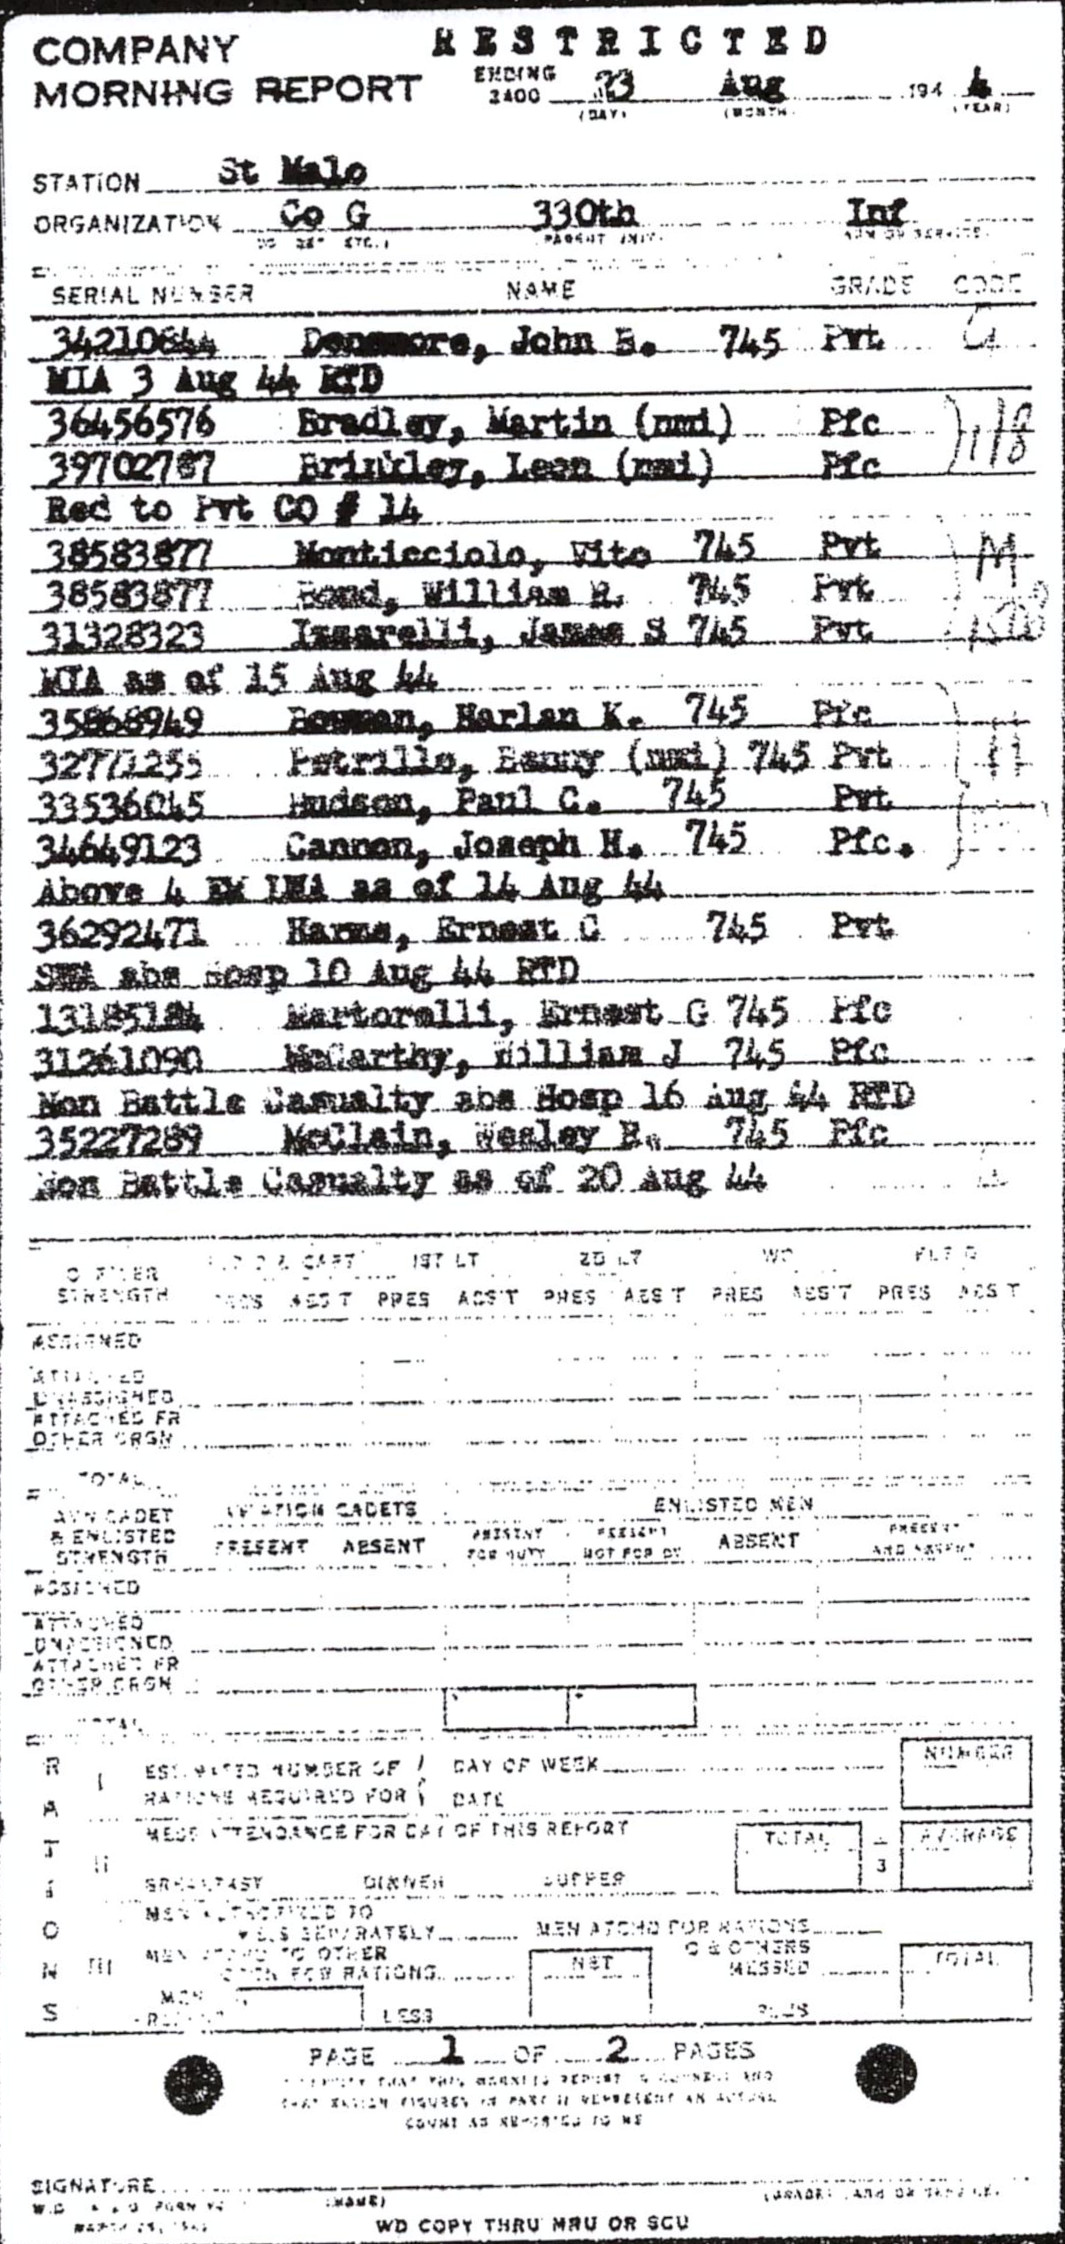 COMPANY RESTRICTED
MORNING REPORT ENDING 2400 23 Aug 194 4
(DAY) (MONTH) (YEAR)
STATION St Malo
ORGANIZATION Co G 330th Inf
SERIAL NUMBER NAME GRADE CODE
34210644 Densmore, John B. 745 Pvt G
MIA 3 Aug 44 RTD
36456576 Bradley, Martin (nmi) Pfc
39702787 Brinkley, Leon (nmi) Pfc
Red to Pvt CO # 14
38583877 Monticciolo, Vito 745 Pvt M
38583877 Bond, William R. 745 Pvt
31328323 James S 745 Pvt
MIA as of 15 Aug 44
35868949 Bowman, Harlan K. 745 Pfc
32771255 Petrillo, Benny (nmi) 745 Pvt
33536045 Hudson, Paul C. 745 Pvt
34649123 Cannon, Joseph H. 745 Pfc.
Above 4 EM LWA as of 14 Aug 44
36292471 Harms, Ernest C 745 Pvt
SWA abs Hosp 10 Aug 44 RTD
13185184 Martorelli, Ernest G 745 Pfc
31261090 McCarthy, William J 745 Pfc
Non Battle Casualty abs Hosp 16 Aug 44 RTD
35227289 McClain, Wesley B. 745 Pfc
Non Battle Casualty as of 20 Aug 44
OFFICER 1ST LT 2D LT WO FLT O
STRENGTH PRES ABS'T PRES ABS'T PRES ABS'T PRES ABS'T PRES ABS'T
ASSIGNED
ATTACHED
UNASSIGNED
ATTACHED FR
OTHER ORGN
TOTAL
AVN CADET AVIATION CADETS ENLISTED MEN
& ENLISTED
STRENGTH PRESENT ABSENT PRESENT FOR DUTY PRESENT NOT FOR DY ABSENT PRESENT AND ABSENT
ASSIGNED
ATTACHED
UNASSIGNED
ATTACHED FR
OTHER ORGN
TOTAL
RATIONS
I ESTIMATED NUMBER OF DAY OF WEEK NUMBER
RATIONS REQUIRED FOR DATE
II MESS ATTENDANCE FOR DAY OF THIS REPORT TOTAL 3 AVERAGE
BREAKFAST DINNER SUPPER
MEN AUTHORIZED TO
MESS SEPARATELY MEN ATCHD FOR RATIONS
III MEN ATCHD TO OTHER ORGN FOR RATIONS NET & OTHERS MESSED TOTAL
LESS PLUS
PAGE 1 OF 2 PAGES
I CERTIFY THAT THIS MORNING REPORT IS CORRECT AND
THAT RATION FIGURES IN PART II REPRESENT AN ACTUAL
COUNT AS REPORTED TO ME
SIGNATURE
(NAME) (GRADE) (ARM OR SERVICE)
WD COPY THRU MRU OR SCU